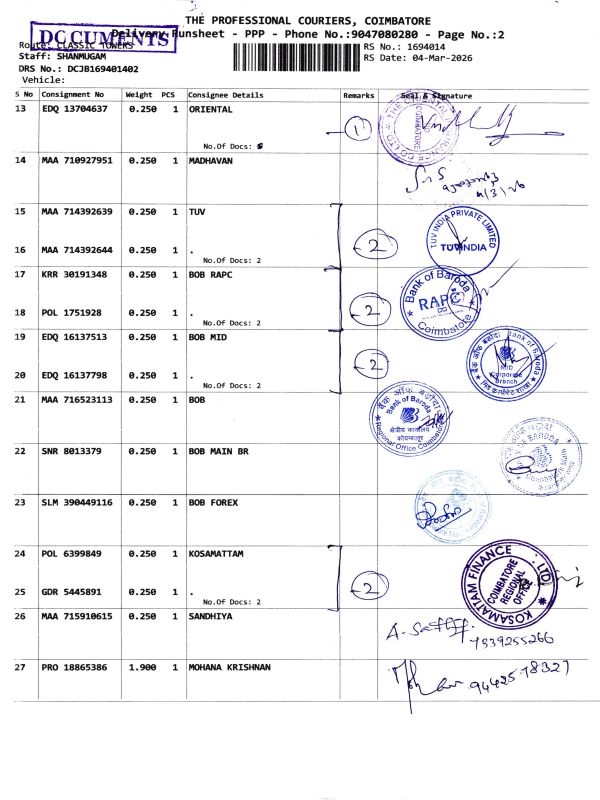 THE PROFESSIONAL COURIERS, COIMBATORE
DOCUMENTS
Delivery Runsheet - PPP - Phone No.:9047080280 - Page No.:2
Route: CLASSIC TOWERS
RS No.: 1694014
Staff: SHANMUGAM
RS Date: 04-Mar-2026
DRS No.: DCJB169401402
Vehicle:
S No Consignment No Weight PCS Consignee Details Remarks Seal & Signature
13 EDQ 13704637 0.250 1 ORIENTAL
No.Of Docs:
1
COIMBATORE
14 MAA 710927951 0.250 1 MADHAVAN
15 MAA 714392639 0.250 1 TUV
16 MAA 714392644 0.250 1 .
No.Of Docs: 2
2
TUV INDIA PRIVATE LIMITED
TUV INDIA
17 KRR 30191348 0.250 1 BOB RAPC
18 POL 1751928 0.250 1 .
No.Of Docs: 2
2
Bank of Baroda
RAPC
Coimbatore
19 EDQ 16137513 0.250 1 BOB MID
20 EDQ 16137798 0.250 1 .
No.Of Docs: 2
2
बैंक ऑफ़ बड़ौदा Bank of Baroda
MID
Corporate
Branch
21 MAA 716523113 0.250 1 BOB
बैंक ऑफ़ बड़ौदा
Bank of Baroda
क्षेत्रीय कार्यालय
कोयम्बत्तूर
Regional Office Coimbatore
22 SNR 8013379 0.250 1 BOB MAIN BR
23 SLM 390449116 0.250 1 BOB FOREX
24 POL 6399849 0.250 1 KOSAMATTAM
25 GDR 5445891 0.250 1 .
No.Of Docs: 2
2
KOSAMATTAM FINANCE LTD
COIMBATORE
REGIONAL
OFFICE
26 MAA 715910615 0.250 1 SANDHIYA
27 PRO 18865386 1.900 1 MOHANA KRISHNAN